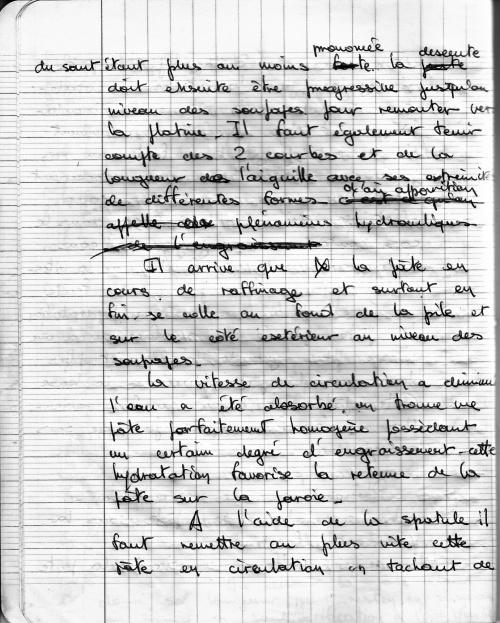 prononcée descente
du saut étant plus ou moins forte. la pente
doit ensuite être progressive jusqu'au
niveau des soupapes pour remonter vers
la platine. Il faut également tenir
compte des 2 courbes et de la
longueur de l'aiguille avec ses extremités
de différentes formes d'où apparition
appelle des phénomènes hydrauliques
de l'engraissement
Il arrive que la pâte en
cours de raffinage et surtout en
fin se colle au fond de la pile et
sur le côté extérieur au niveau des
soupapes.
la vitesse de circulation a diminu
l'eau a été absorbé, on trouve une
pâte parfaitement homogène possédant
un certain degré d'engraissement - cette
hydratation favorise la retenue de la
pâte sur la paroie -
A l'aide de la spatule il
faut remettre au plus vite cette
pâte en circulation en tachant de